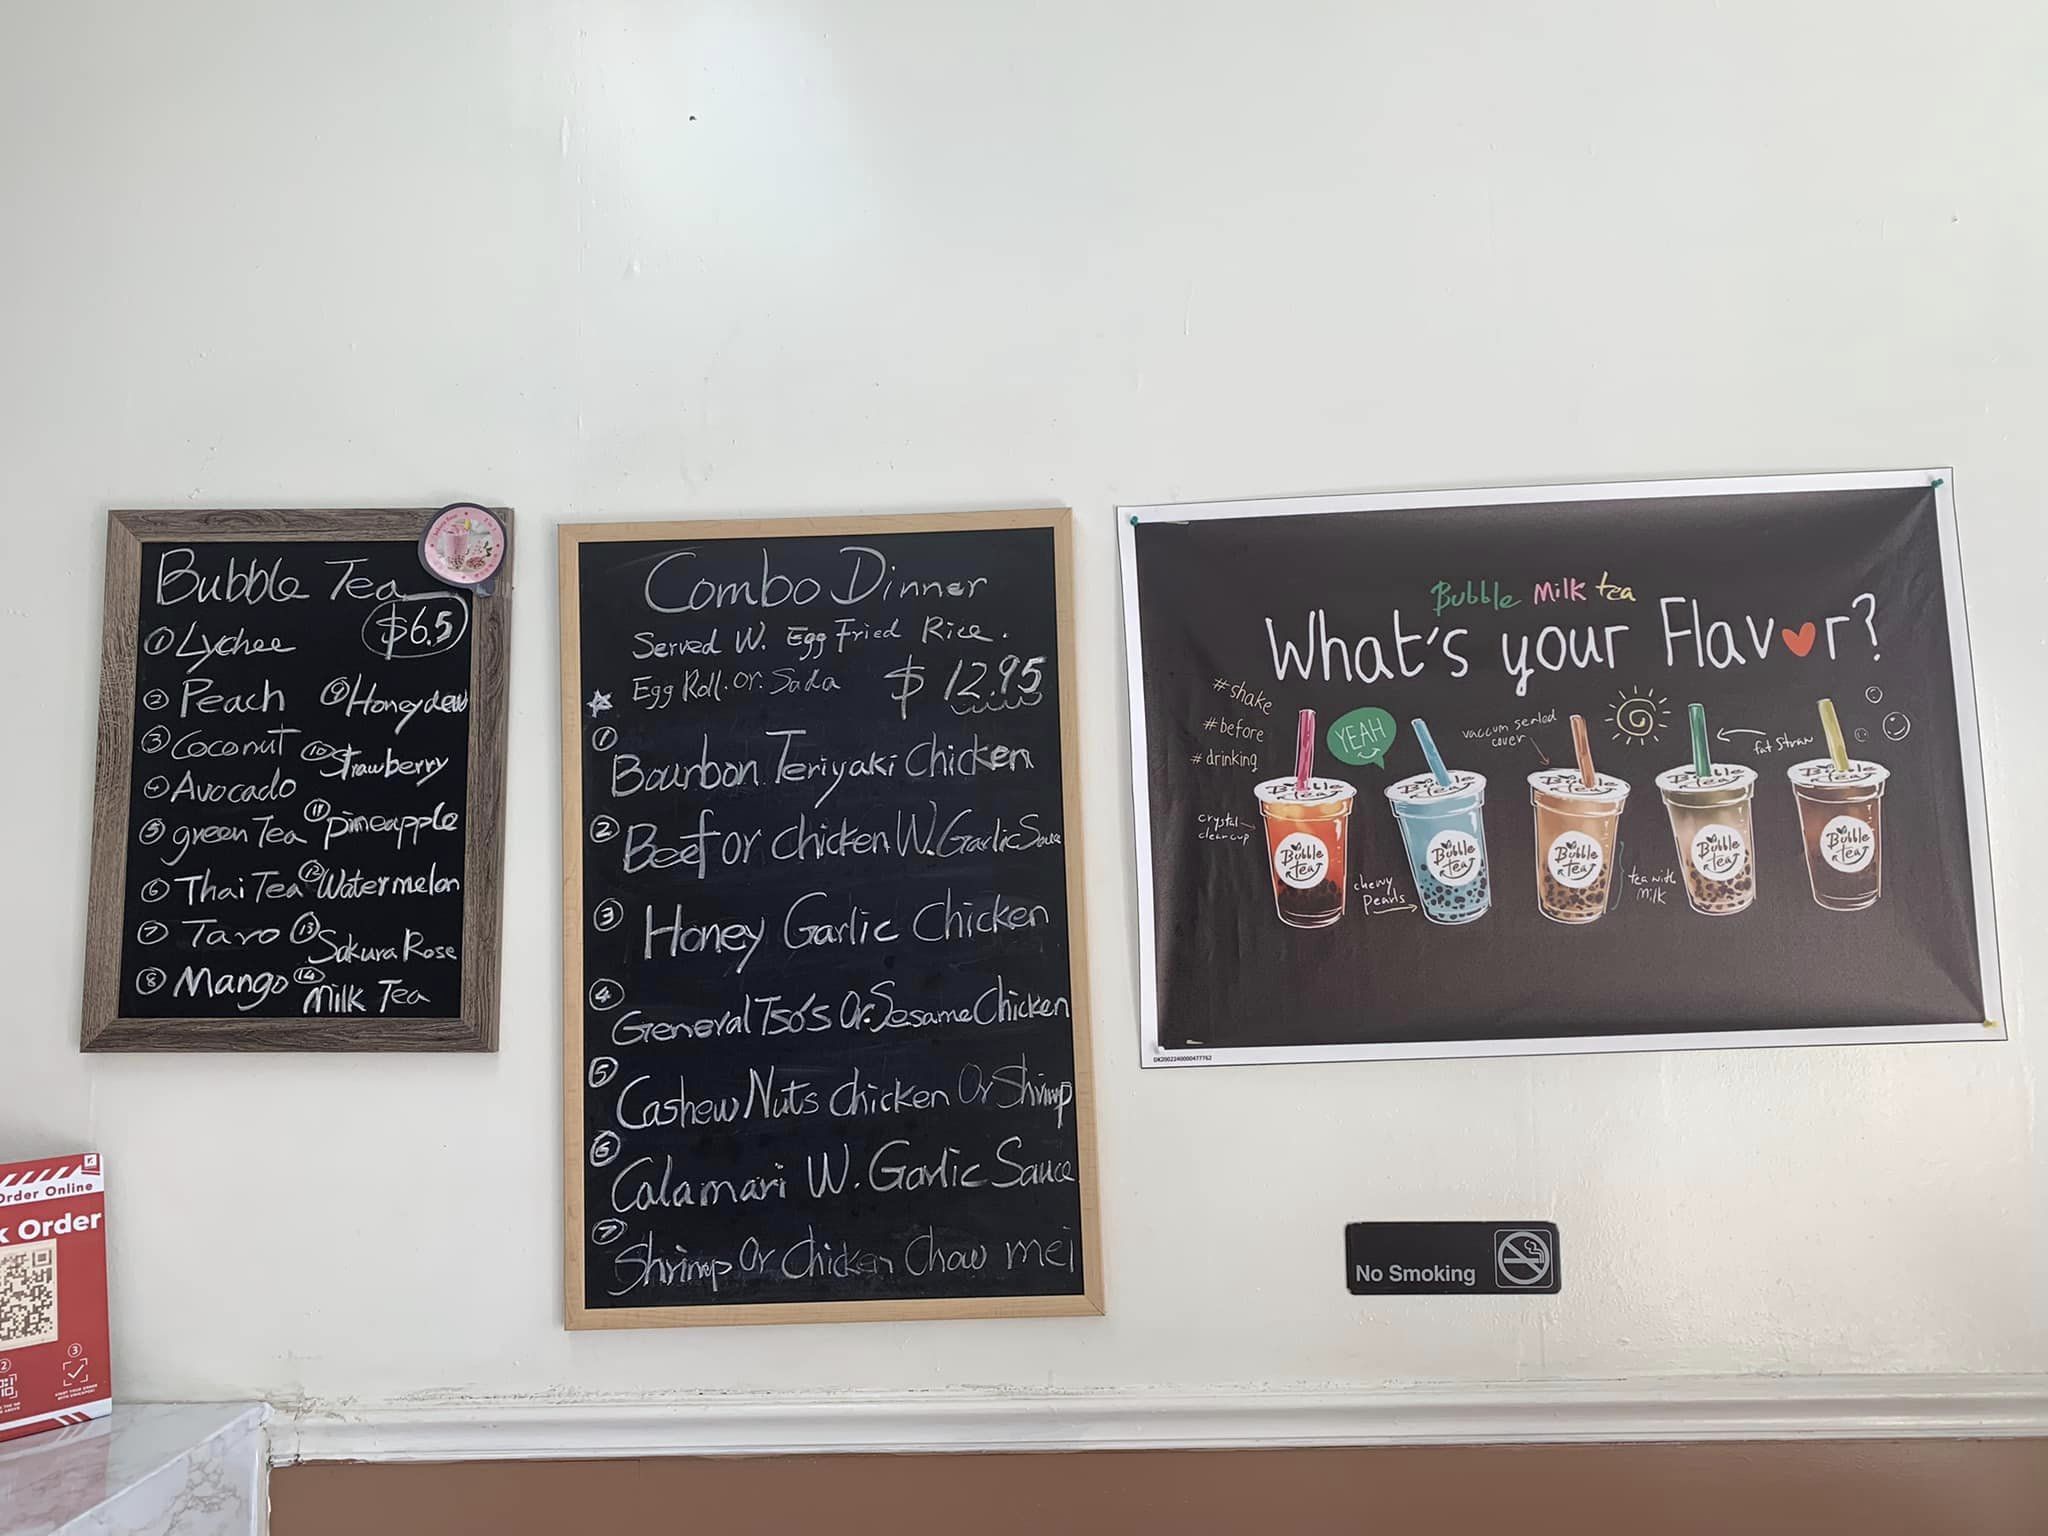 Bubble Tea
$6.5
① Lychee
② Peach
③ Coconut
④ Avocado
⑤ green Tea
⑥ Thai Tea
⑦ Taro
⑧ Mango
⑨ Honeydew
⑩ Strawberry
⑪ pineapple
⑫ Watermelon
⑬ Sakura Rose
⑭ Milk Tea
Combo Dinner
Served W. Egg Fried Rice.
Egg Roll. Or. Soda $ 12.95
① Bourbon Teriyaki Chicken
② Beef or chicken W. Garlic Sauce
③ Honey Garlic Chicken
④ General Tso's Or. Sesame Chicken
⑤ Cashew Nuts chicken Or Shrimp
⑥ Calamari W. Garlic Sauce
⑦ Shrimp Or Chicken Chow mei
Bubble Milk tea
What's your Flavor?
#shake
#before
#drinking
YEAH
vaccum sealed
cover
fat straw
crystal
clean cup
chewy
Pearls
tea with
milk
Bubble
Tea
Bubble
Tea
Bubble
Tea
Bubble
Tea
Bubble
Tea
Bubble
tea
Bubble
tea
Bubble
tea
Bubble
tea
Bubble
tea
DK2002240000477762
No Smoking
Order Online
k Order
②
③
START YOUR ORDER